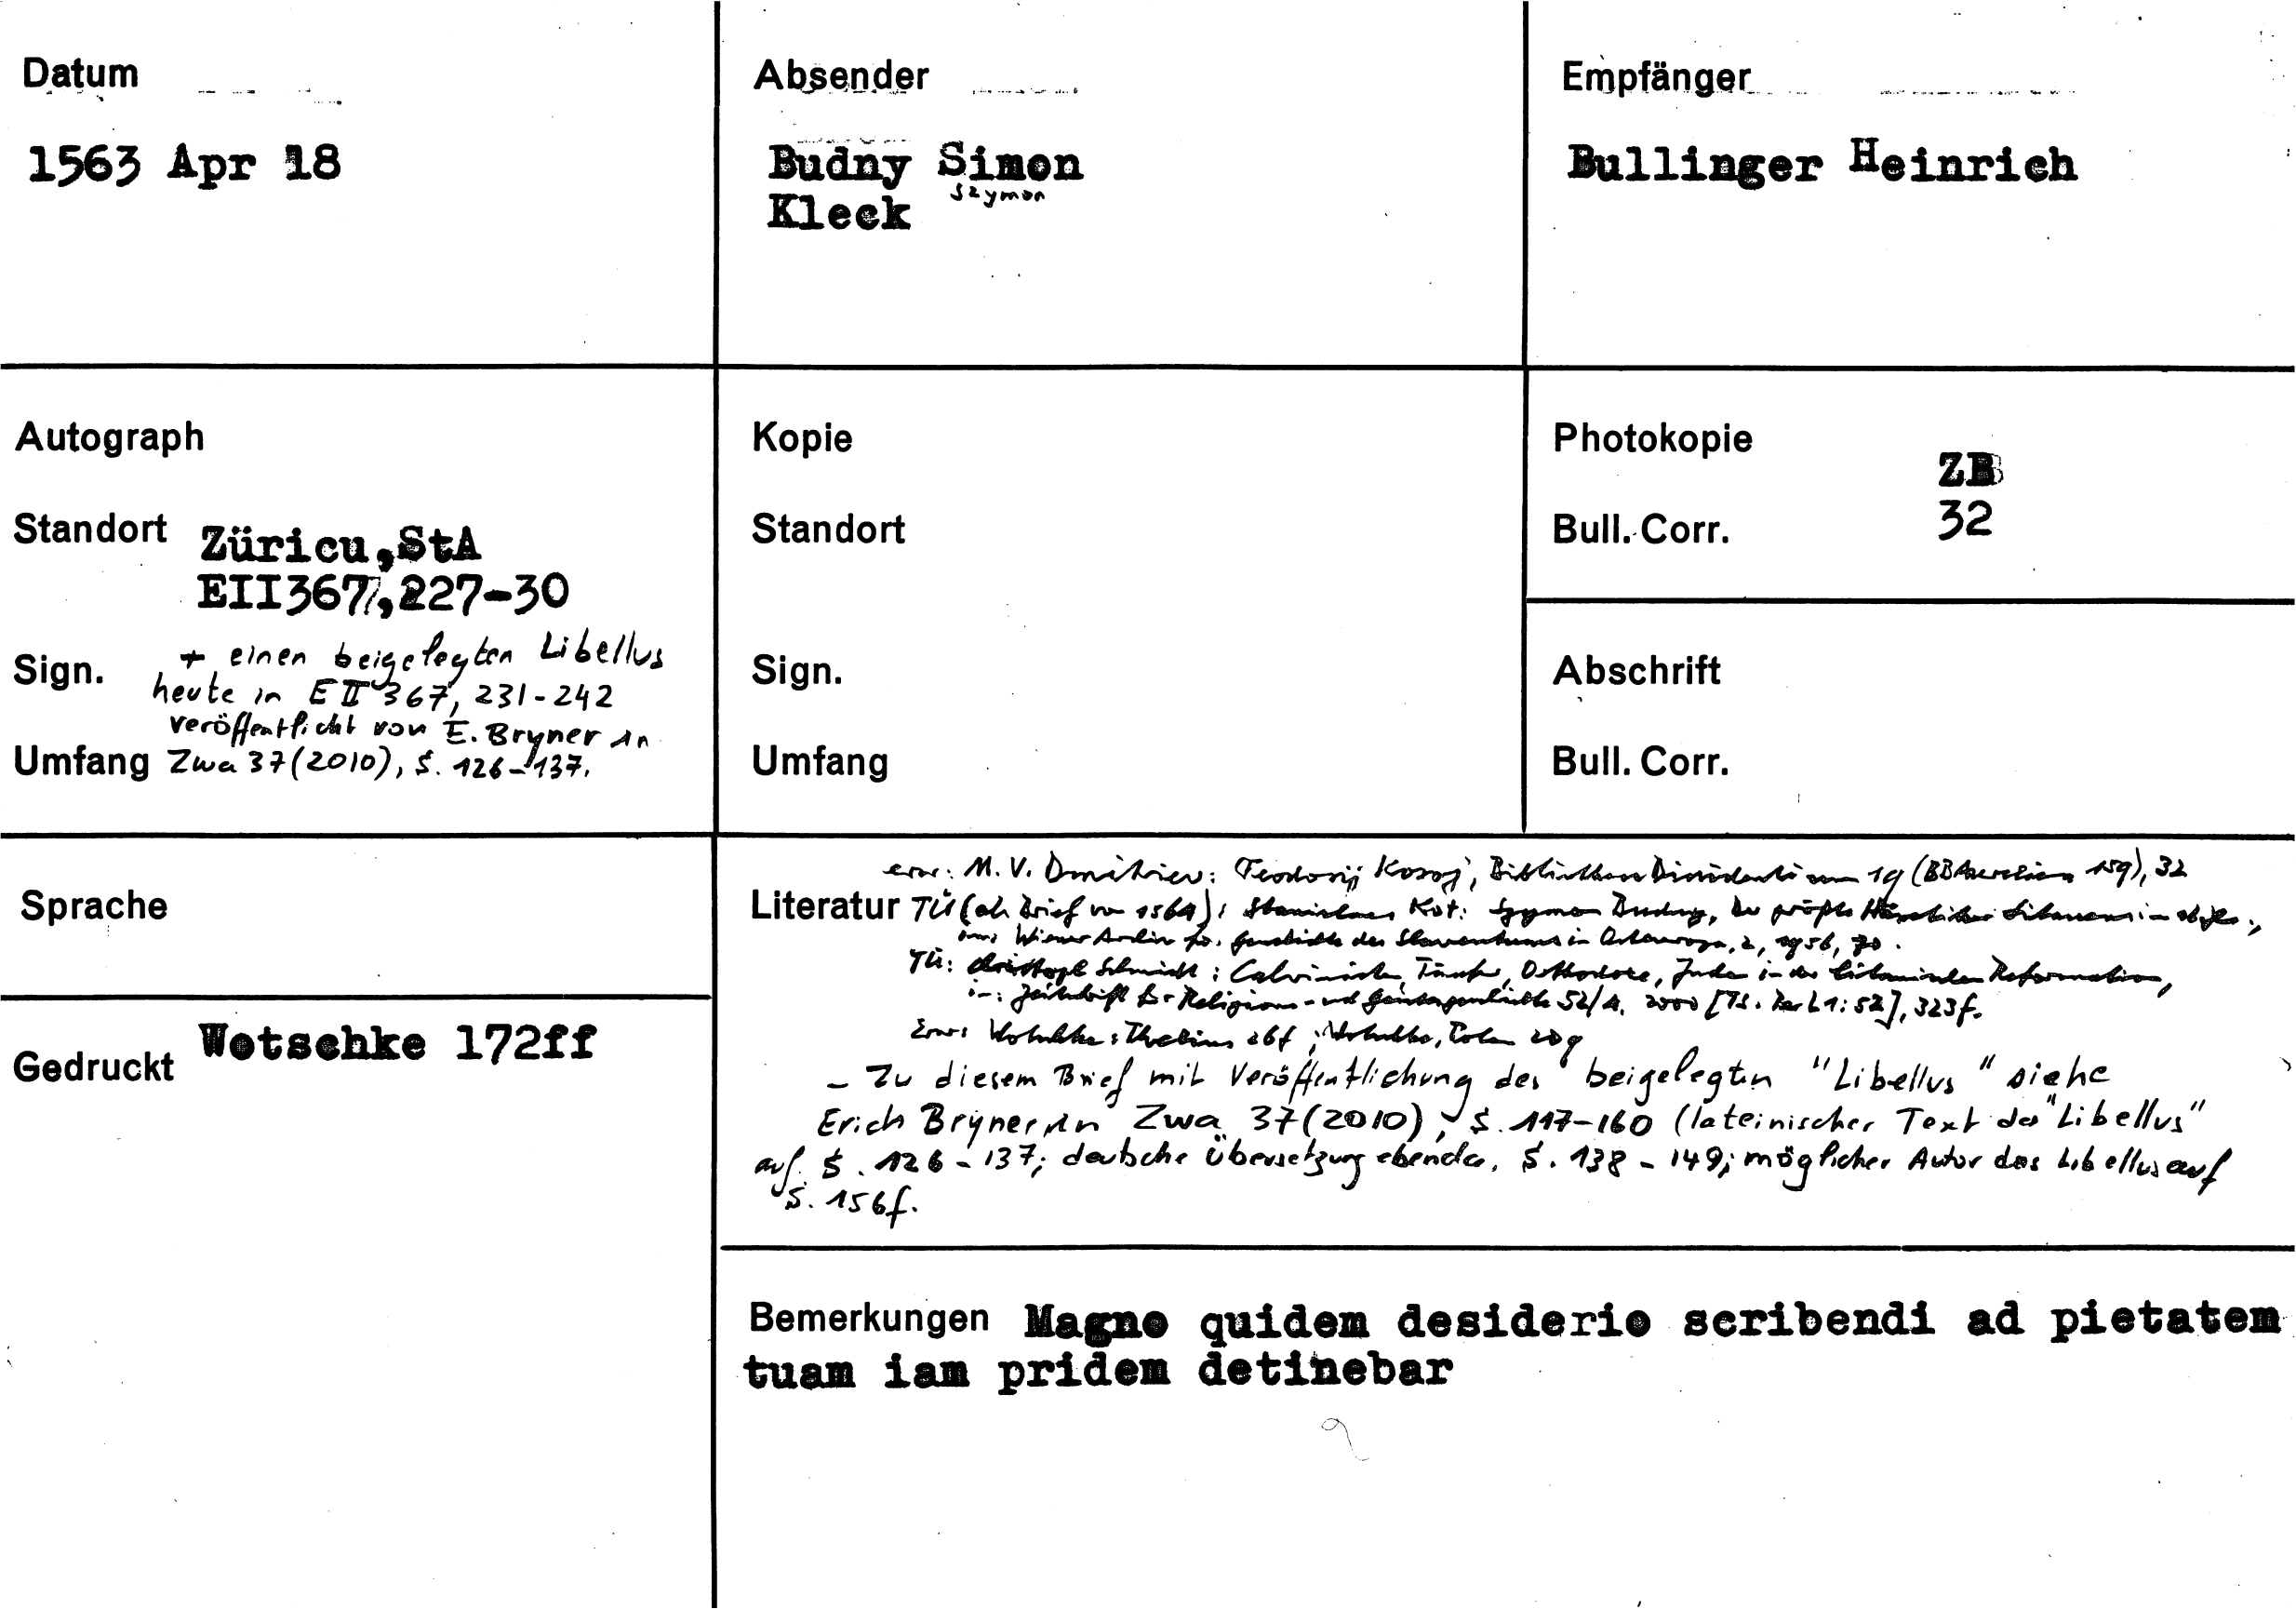 Datum
1563 Apr 18
Absender
Budny Simon
Szymon
Kleck
Empfänger
Bullinger Heinrich
Autograph
Standort Züricu,StA
EII367,227-30
Sign. + einen beigelegten Libellus
heute in E II 367, 231-242
veröffentlicht von E. Bryner in
Umfang Zwa 37 (2010), S. 126-137.
Kopie
Standort
Sign.
Umfang
Photokopie
ZB
Bull. Corr. 32
Abschrift
Bull. Corr.
Sprache
Gedruckt Wotschke 172ff
erw: M. V. Dmitriev: Feodosij Kosoj, Bibliotheca Dissidentium 19 159), 32
Literatur TÜ (als Brief von 1564): Stanislaus Kot: Szymon Budny, Der größte Häretiker Litauens im
Wiener Archiv für Geschichte des Slawentums in Osteuropa, 2, 1956, 70.
TÜ: Christoph Schmidt: Calvinisten, Täufer, Orthodoxe, Juden in der litauischen Reformation,
in: Zeitschrift für Religions- und Geistesgeschichte 52/4, 2000 52], 323f.
Erw: Wotschke: Thretius 26f; Wotschke, Polen 209
- Zu diesem Brief mit Veröffentlichung des beigelegten "Libellus" siehe
Erich Bryner in Zwa 37 (2010), S. 117-160 (lateinischer Text des "Libellus"
auf S. 126-137; deutsche Übersetzung ebenda, S. 138-149; möglicher Autor des Libellus auf
S. 156f.
Bemerkungen Magno quidem desiderio scribendi ad pietatem
tuam iam pridem detinebar